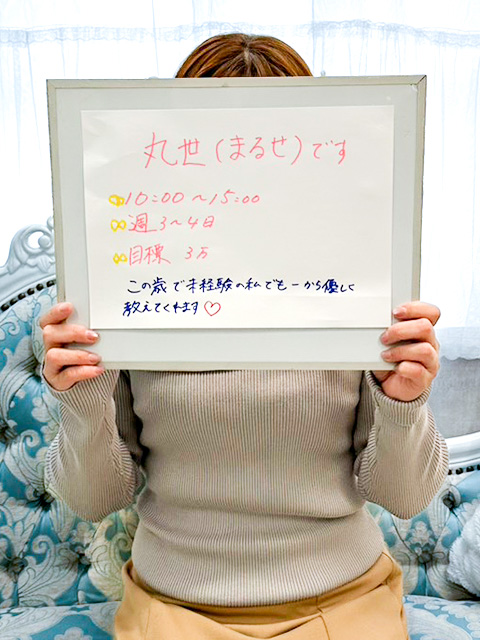 丸世(まるせ)です
10:00～15:00
週3～4日
目標 3万
この歳で未経験の私でも一から優しく
教えてくれます♡